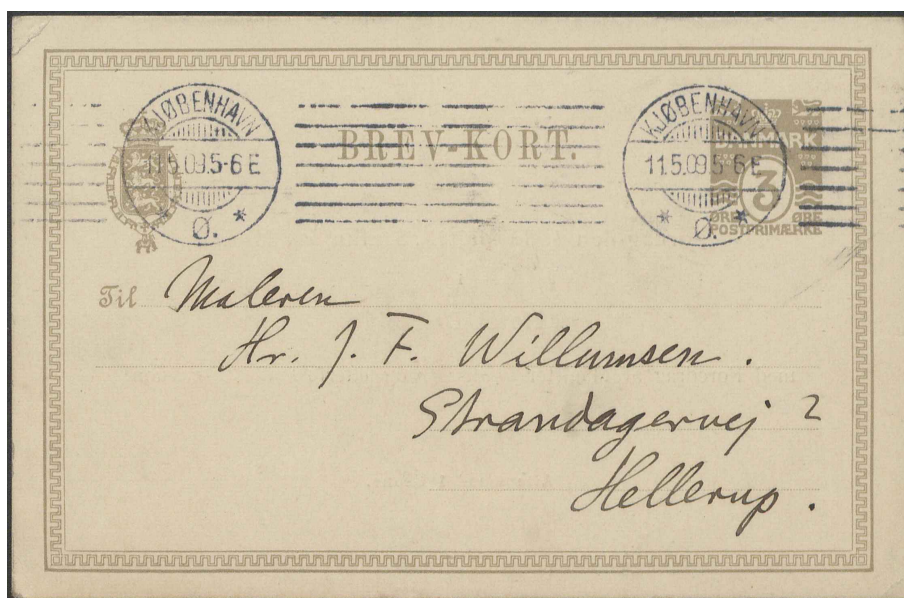 KJØBENHAVN
11.5.09.5-6 E
Ø.
BREV-KORT.
KJØBENHAVN
11.5.09.5-6 E
Ø.
DANMARK
3
ØRE ØRE
POSTFRIMÆRKE
Til Maleren
Hr. J. F. Willumsen.
Strandagervej 2
Hellerup.